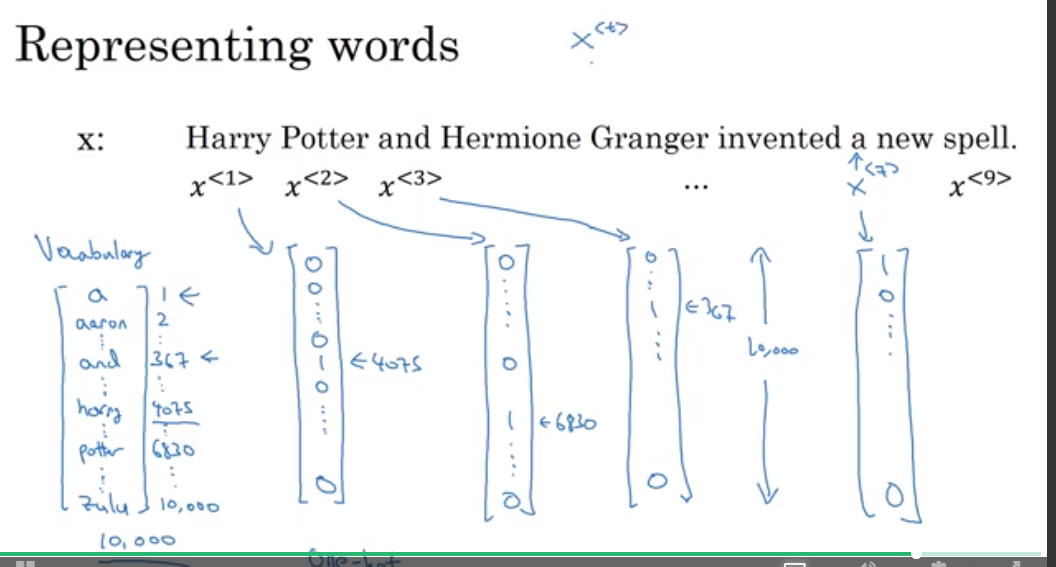 Representing words
x<t>
x: Harry Potter and Hermione Granger invented a new spell.
x<1> x<2> x<3> ... x<7> x<9>
Vocabulary
a 1 ←
aaron 2
and 367 ←
harry 4075
potter 6830
zulu 10,000
10,000
0
0
0
1 ← 4075
0
0
0
0
1 ← 6830
0
0
1 ← 367
0
10,000
1
0
0
One-hot